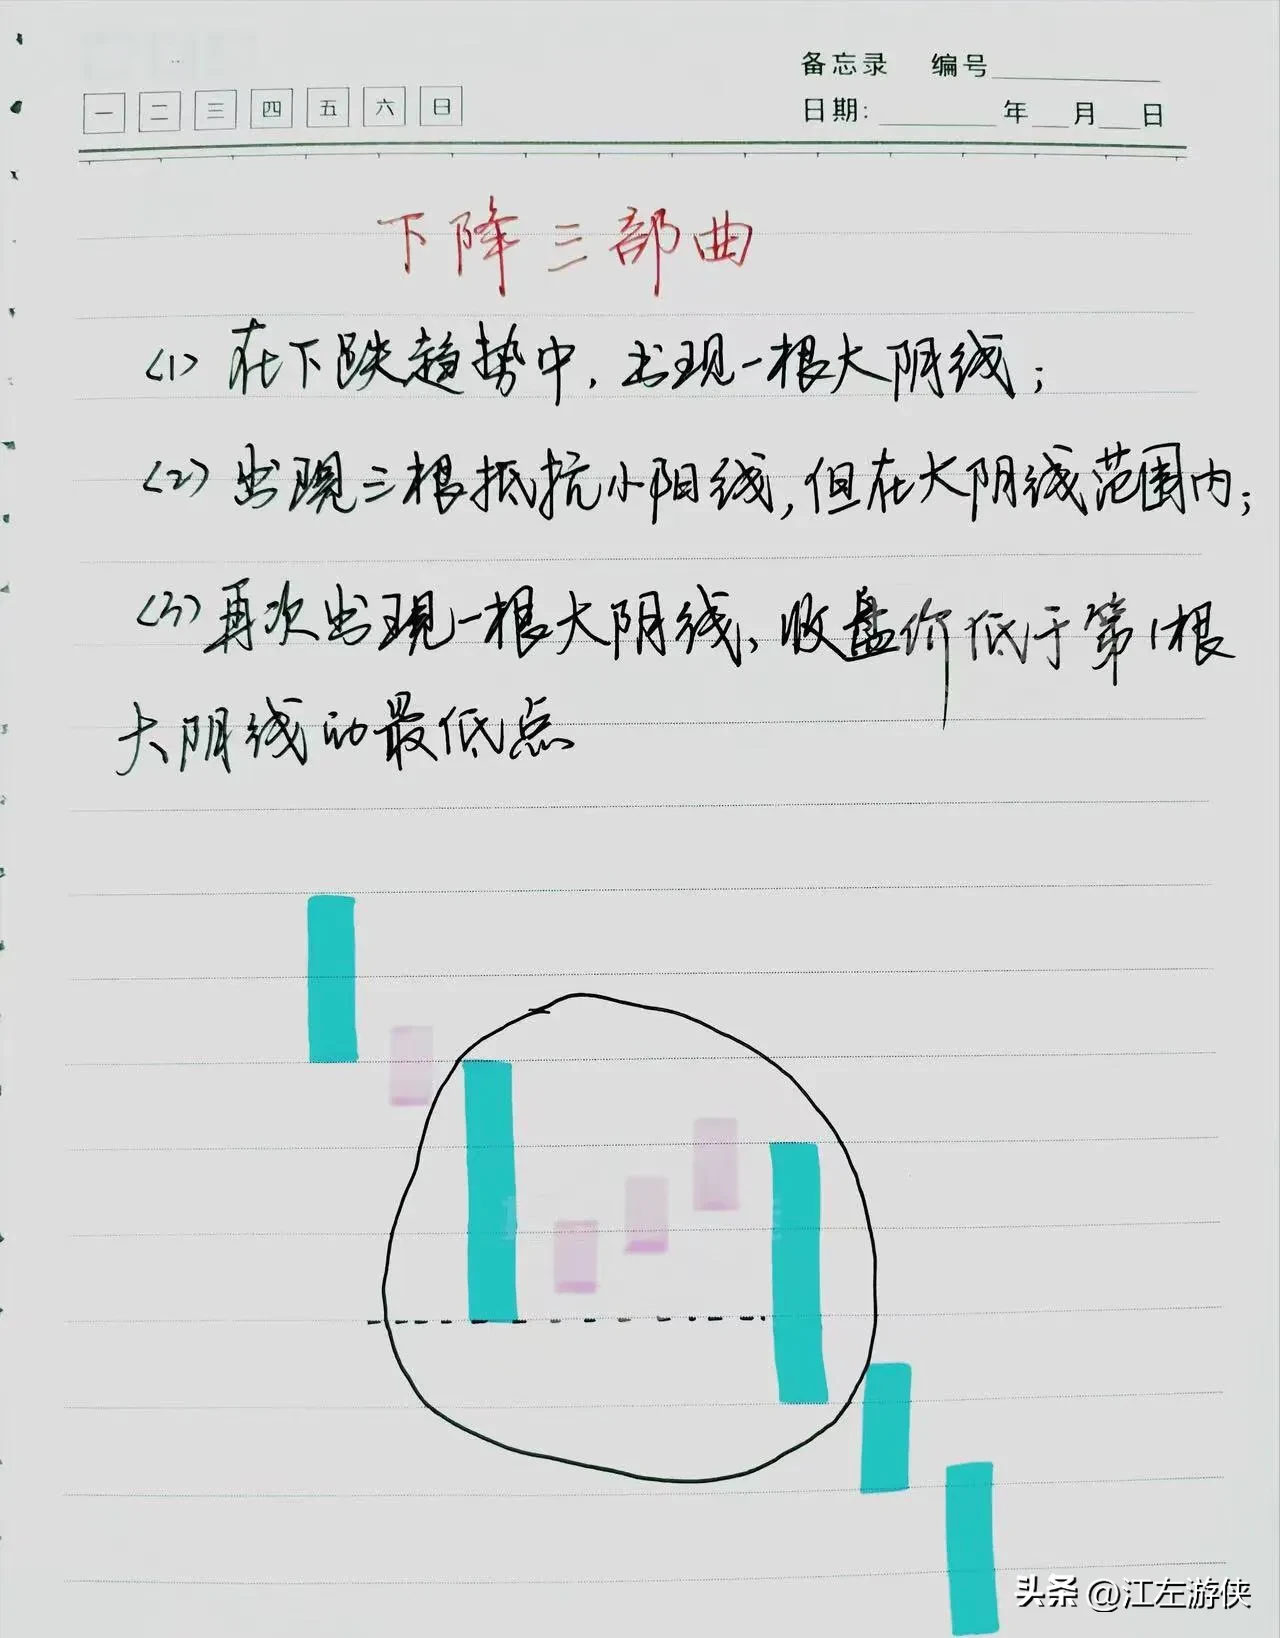 备忘录 编号
一 二 三 四 五 六 日
日期: 年 月 日
下降三部曲
(1) 在下跌趋势中, 出现一根大阴线;
(2) 出现三根抵抗小阳线, 但在大阴线范围内;
(3) 再次出现一根大阴线, 收盘价低于第1根
大阴线的最低点
头条 @江左游侠